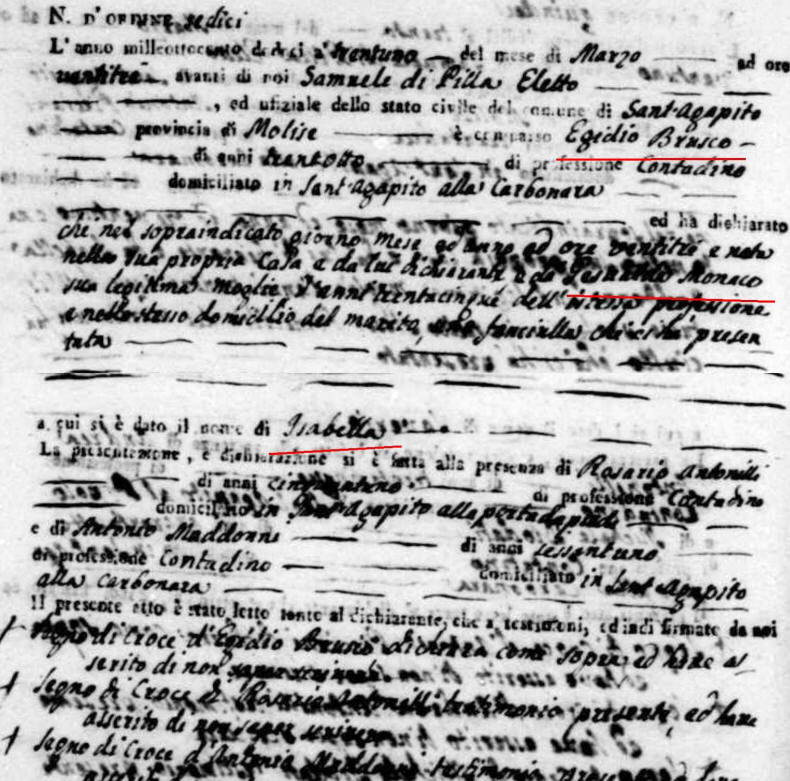 N. D'ORDINE sedici
L'anno millottocento dieci a' trentuno del mese di Marzo ad ore
ventitre avanti di noi Samuele di Pilla Eletto
, ed ufiziale dello stato civile del comune di Sant'Agapito
provincia di Molise è comparso Egidio Brusco
di anni trentotto di professione Contadino
domiciliato in Sant'Agapito alla Carbonara
ed ha dichiarato
che nel sopraindicato giorno mese ed anno ed ore ventitrè è nata
nella sua propria Casa e da lui dichiarante e da Monaco
sua legitima Moglie d'anni trentacinque dell'istessa professione
e nello stesso domicilio del marito, una fanciulla che ci ha presen
tata
a cui si è dato il nome di Isabella
La presentazione, e dichiarazione si è fatta alla presenza di Rosario Antonelli
di anni cinquantuno di professione Contadino
domiciliato in Sant'Agapito alla
e di Antonio Maddonni di anni sessantuno
di professione Contadino domiciliato in Sant'Agapito
alla Carbonara
Il presente atto è stato letto tonto al dichiarante, che a' testimonj, ed indi firmato da noi
Segno di Croce d'Egidio Brusco dichiara come sopra ed have as
serito di non saper scrivere
Segno di Croce di Rosario Antonelli testimonio presente, ed have
asserito di non saper scrivere
Segno di Croce d'Antonio Maddonni testimonio